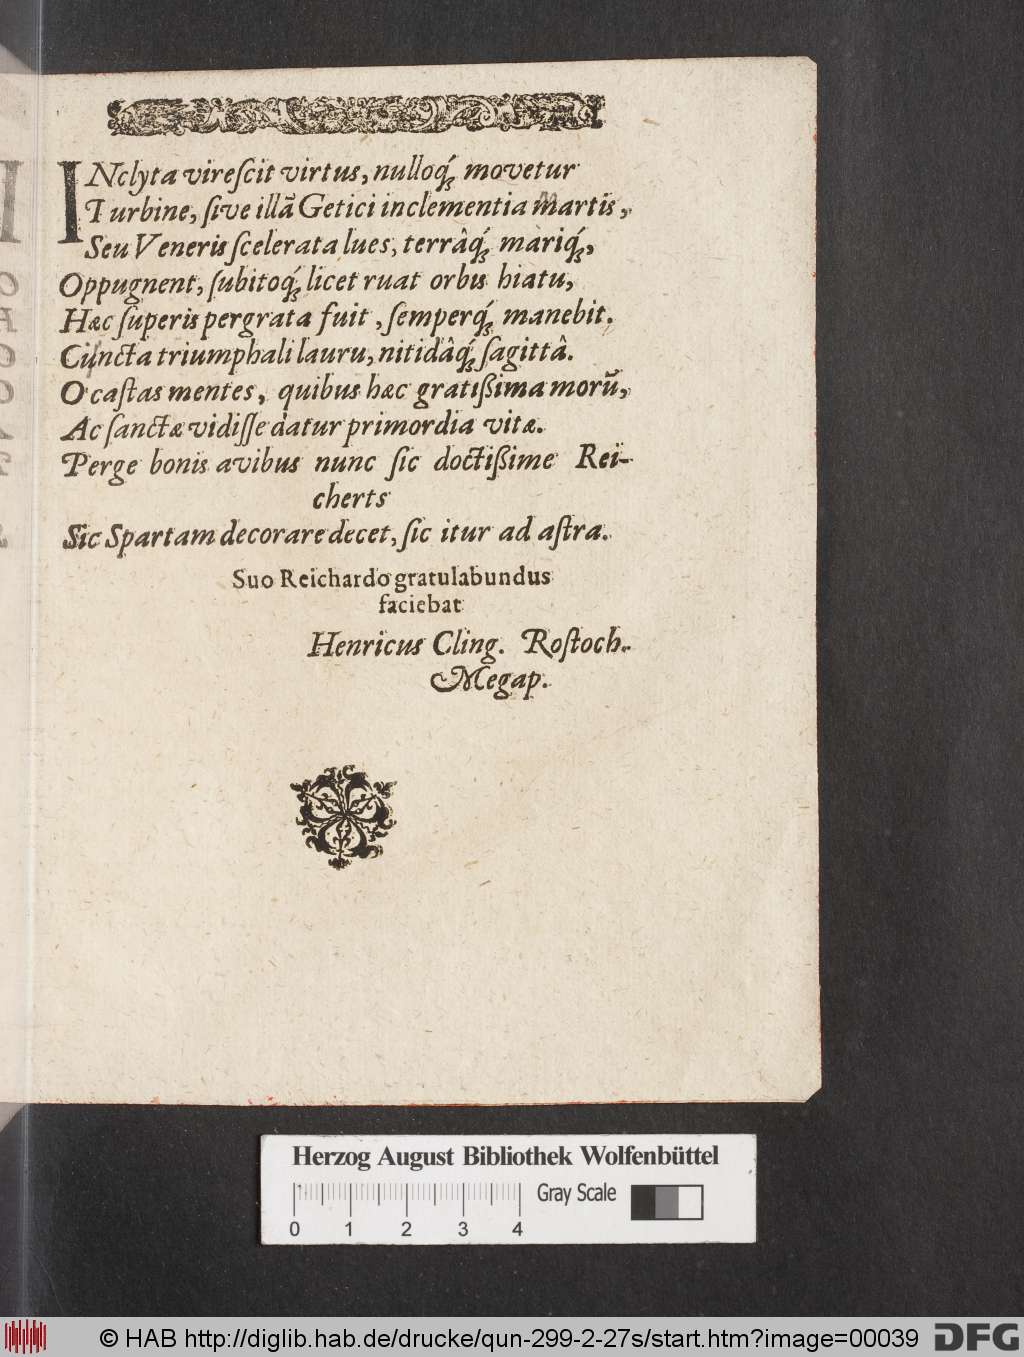 INclyta virescit virtus, nulloq́; movetur
Turbine, sive illā Getici inclementia martis,
Seu Veneris scelerata lues, terrâq́; mariq́;,
Oppugnent, subitoq́; licet ruat orbis hiatu,
Hæc superis pergrata fuit, semperq́; manebit.
Cuncta triumphali lauru, nitidâq́; sagittâ.
O castas mentes, quibus hæc gratißima morū,
Ac sanctæ vidisse datur primordia vitæ.
Perge bonis avibus nunc sic doctißime Rei-
cherts
Sic Spartam decorare decet, sic itur ad astra.
Suo Reichardo gratulabundus
faciebat
Henricus Cling. Rostoch.
Megap.
Herzog August Bibliothek Wolfenbüttel
Gray Scale
0 1 2 3 4
© HAB http://diglib.hab.de/drucke/qun-299-2-27s/start.htm?image=00039
DFG